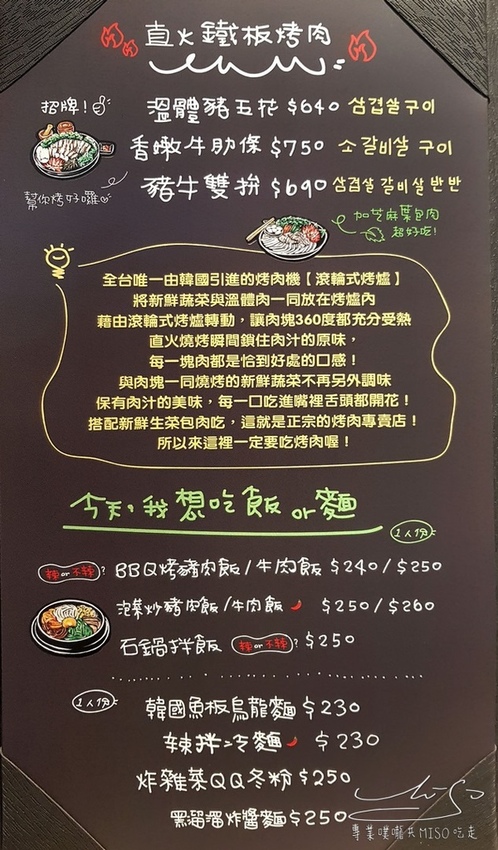 直火鐵板烤肉
招牌!
溫體豬五花 $640 삼겹살구이
香嫩牛肋條 $750 소 갈비살 구이
豬牛雙拚 $690 삼겹살 갈비살 반반
幫你烤好囉
加芝麻葉包肉
超好吃!
全台唯一由韓國引進的烤肉機【滾輪式烤爐】
將新鮮蔬菜與溫體肉一同放在烤爐內
藉由滾輪式烤爐轉動，讓肉塊360度都充分受熱
直火燒烤瞬間鎖住肉汁的原味，
每一塊肉都是恰到好處的口感！
與肉塊一同燒烤的新鮮蔬菜不再另外調味
保有肉汁的美味，每一口吃進嘴裡舌頭都開花！
搭配新鮮生菜包肉吃，這就是正宗的烤肉專賣店！
所以來這裡一定要吃烤肉喔！
今天，我想吃飯or麵
1人份
辣or不辣? BBQ烤豬肉飯/牛肉飯 $240/$250
泡菜炒豬肉飯/牛肉飯 $250/$260
石鍋拌飯 辣or不辣? $250
1人份
韓國魚板烏龍麵 $230
辣拌冷麵 $230
炸雜菜QQ冬粉 $250
黑溜溜炸醬麵 $250
miso
專業噗嚨共MISO吃走